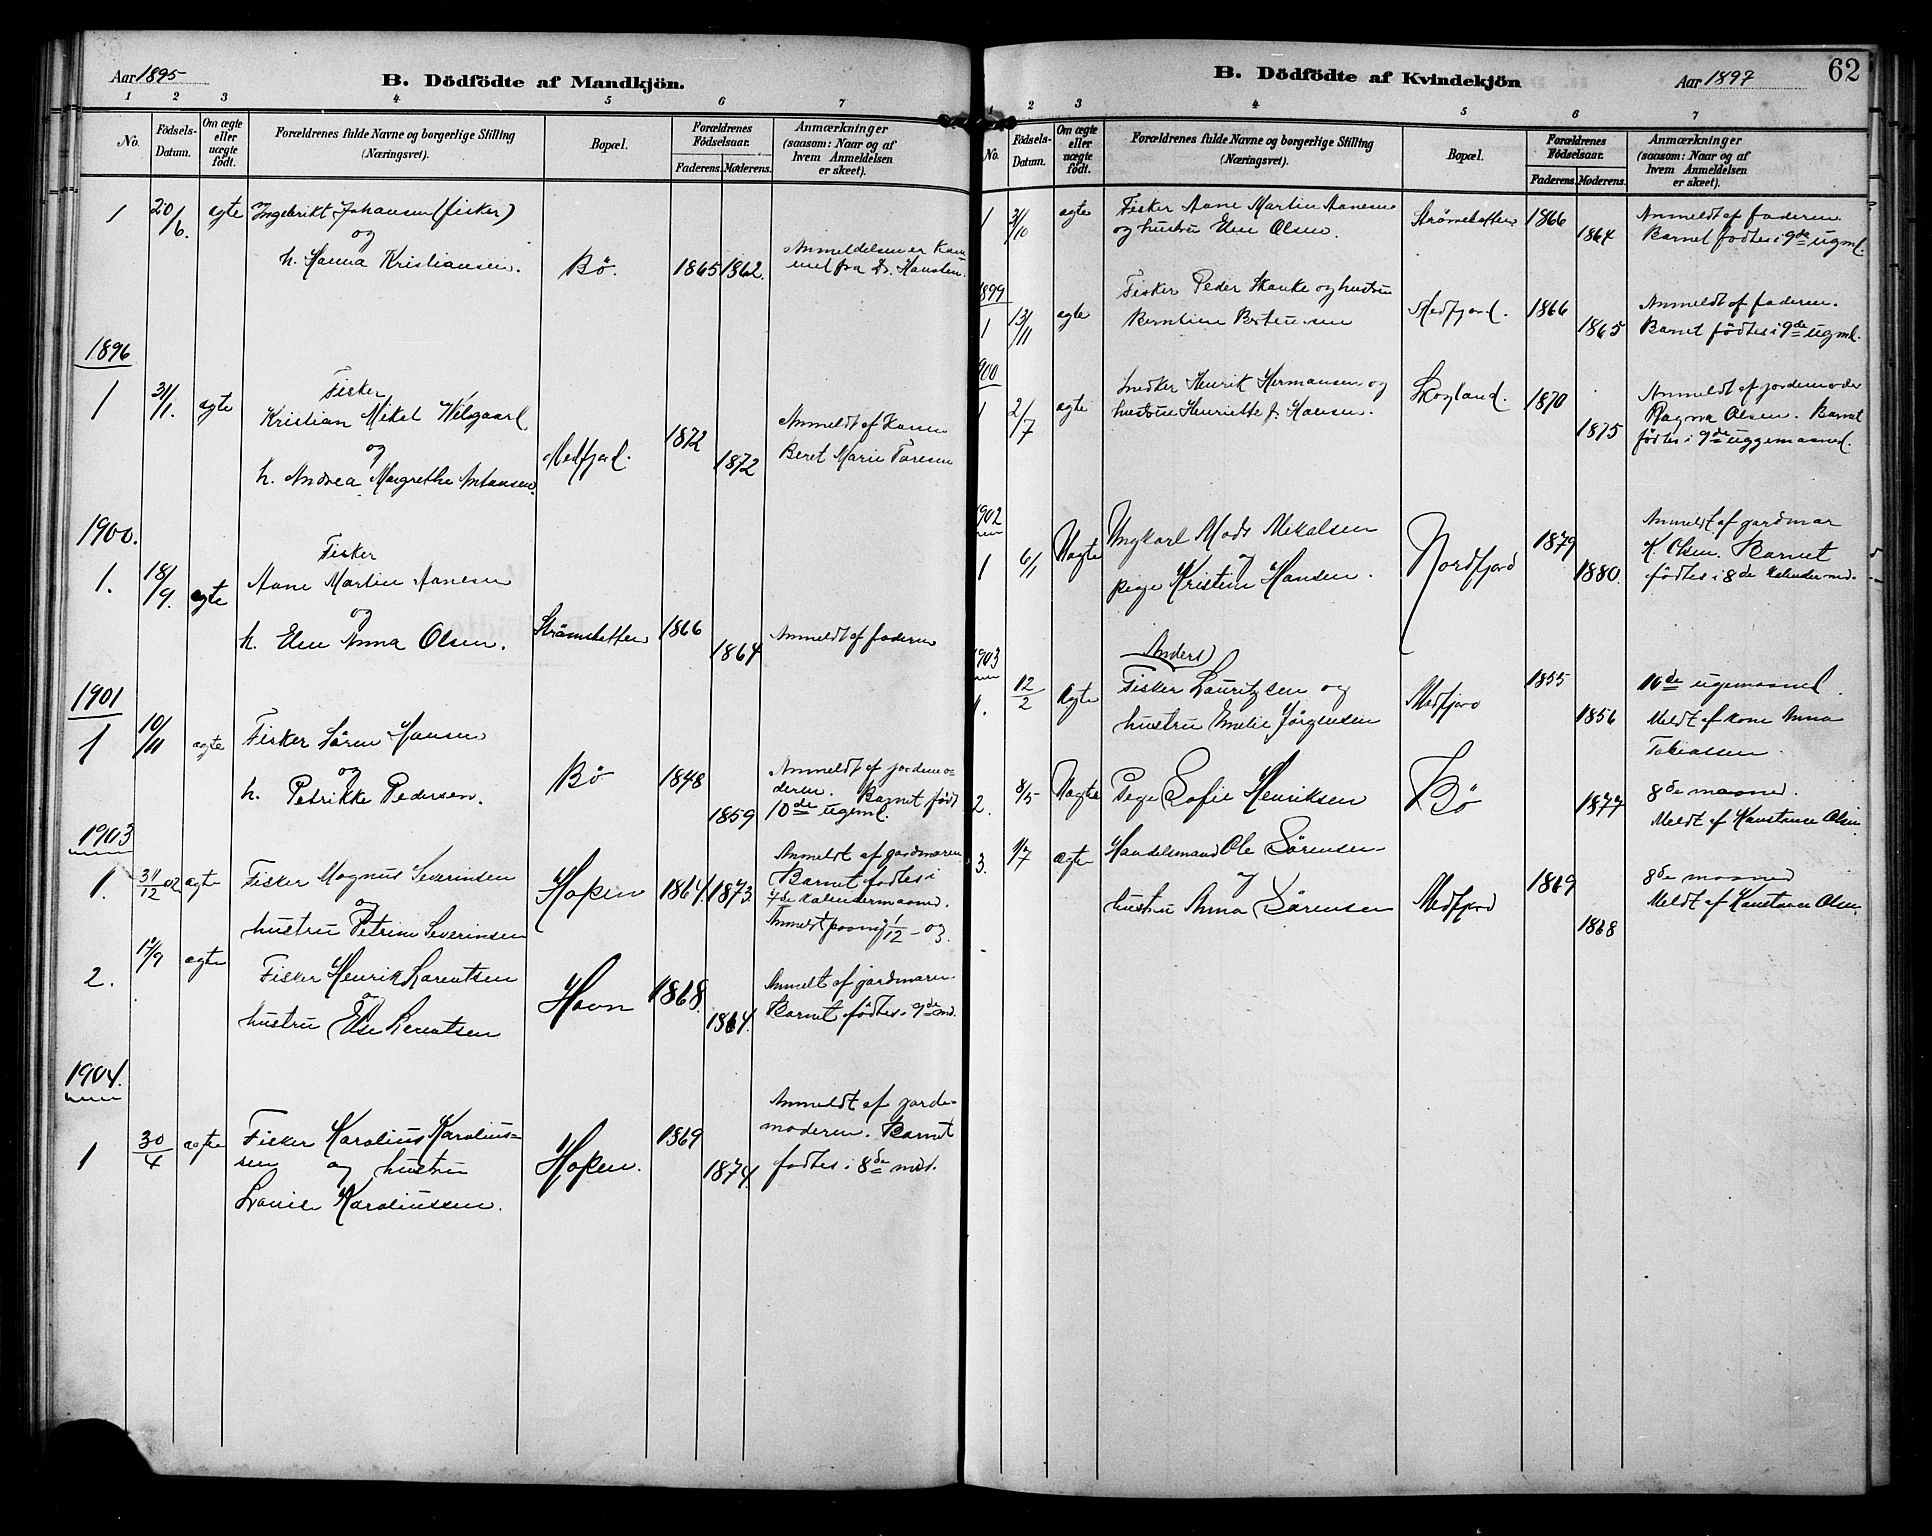 Aar 1895
B. Dödfödte af Mandkjön.
1 2 3 4 5 6 7
No.
Födsels-
Datum.
Om ægte
eller
uægte
födt.
Forældrenes fulde Navne og borgerlige Stilling
(Næringsvei).
Bopæl.
Forældrenes
Födselsaar.
Faderens. Moderens.
Anmærkninger
(saasom: Naar og af
hvem Anmeldelsen
er skeet).
1 20/6. ægte Ingebrikt Johansen (fisker)
og
h. Hanna Kristiansen. Bö. 1865 1862.
Anmeldelsen er kom
met fra Dr.
1896
1 31/1. ægte Fisker
Kristian Mikal
og
h. Andrea Margrethe Antonsen.
Medfjord. 1872 1872
Anmeldt af Konen
Beret Marie Toresen
1900.
1. 18/9. ægte Fisker
Aane Martin Aanesen
og
h. Elen Anna Olsen. 1866 1864 Anmeldt af faderen
1901
1 10/11 ægte Fisker Sören Hansen
og
h. Petrikke Pedersen. Bö 1848 1859
Anmeldt af jordemo-
deren. Barnet födt
10de ugemd.
1903
1. 31/12 02 ægte Fisker Magnus Severinsen
og
hustru Petrine Severinsen
Hopen 1864. 1873.
Anmeldt af jordmoren
Barnet födtes i
7de kalendermaaned.
Anmeldt paany 1/12 - 03.
2. 17/9 ægte Fisker Henrik Lorentsen
og
hustru Else Lorentsen
Havn 1868. 1864.
Anmelt af jordmoren
Barnet födtes i 9de md.
1904.
1 30/4 ægte Fisker Karolius Karolius-
sen og hustru
Karoliussen.
Hopen. 1869 1874.
Anmeldt af jorde-
moderen. Barnet
födtes i 8de md.
B. Dödfödte af Kvindekjön
Aar 1897
62
1 2 3 4 5 6 7
No.
Födsels-
Datum.
Om ægte
eller
uægte
födt.
Forældrenes fulde Navne og borgerlige Stilling
(Næringsvei).
Bopæl.
Forældrenes
Födselsaar.
Faderens. Moderens.
Anmærkninger
(saasom: Naar og af
hvem Anmeldelsen
er skeet).
1 31/10 ægte Fisker Aane Martin Aanesen
og hustru Elen Olsen. 1866 1864
Anmeldt af faderen.
Barnet födtes i 9de ugmd.
1899
1 13/11 ægte Fisker Peder Skanke og hustru
Berntine
Medfjord. 1866 1865
Anmeldt af faderen.
Barnet födtes i 9de ugmd.
1900
1 2/7 ægte Snedker Henrik Hermansen og
hustru Henriette J. Hansen.
Skogland. 1870 1875
Anmeldt af jordemoder
Ragna Olsen. Barnet
födtes i 9de uggemaaned.
1902
1 6/1 Uægte Ungkarl Mads Mikalsen
og
pige Kristine Hansen.
Nordfjord 1879 1880.
Anmeldt af jordmor
K. Olsen. Barnet
födtes i 8de kalendermd.
1903
1. 12/2 Ægte (Anders)
Fisker Lauritzsen og
hustru Emelie Jörgensen
Medfjord 1855 1856
10de ugemaaned.
Meldt af kone Anna
Tobiassen.
2. 8/5 Uægte Pige Sofie Henriksen
Bö 1877
8de maaned.
Meldt af Konstanse Olsen
3. 1/7 ægte Handelsmand Ole Sörensen
og
hustru Anna Sörensen
Medfjord 1869 1868
8de maaned
Meldt af Konstanse Olsen.